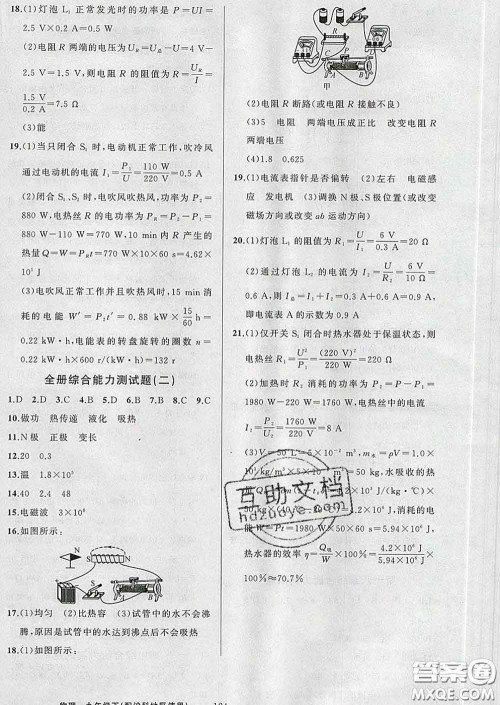 18.(1)灯泡 L₁ 正常发光时的功率是 P=UI=
2.5 V×0.2 A=0.5 W
(2)电阻 R 两端的电压为 U_R=U-U₁=4 V-
2.5 V=1.5 V,则电阻 R 的阻值为 R=U_R/I=
1.5 V/0.2 A=7.5 Ω
(3)能
19.(1)当只闭合 S₁ 时,电动机正常工作,吹冷风
通过电动机的电流 I=P₁/U=110 W/220 V=0.5 A
(2)闭合 S₁、S₂ 时,电吹风吹热风,功率为 P₂=
880 W,电热丝 R 的电功率为 P_R=P₂-P₁=
880 W-110 W=770 W,10 min内 R 产生的
热量 Q=W=P_Rt=770 W×10×60 s=4.62×
10⁵ J
(3)电吹风正常工作并且吹热风时,15 min消
耗的电能 W'=P₂t'=0.88 kW×15/60 h=
0.22 kW·h,电能表的转盘旋转的圈数 n=
0.22 kW·h×600r/(kW·h)=132 r
全册综合能力测试题(二)
1.D 2.D 3.C 4.B 5.D 6.B 7.B 8.C 9.C
10.做功 热传递 液化 吸热
11.N极 正极 变长
12.20 0.3
13.温 1.8×10⁵
14.40 2.4 48
15.电磁波 3×10⁸
16.如图所示:
17.(1)均匀 (2)比热容 (3)试管中的水不会沸
腾,原因是试管中的水达到沸点后不会吸热
18.(1)如图所示:
甲
(2)电阻 R 断路(或电阻 R 接触不良)
(3)5 电阻 两端电压成正比 改变电阻 R
两端电压
(4)1.8 0.625
19.(1)电流表指针是否偏转 (2)左右 电磁感
应 发电机 (3)调换 N 极、S 极位置(或改变
磁场方向或改变 ab 运动方向)
20.(1)灯泡 L₁ 的阻值为 R₁=U/I₁=6 V/0.3 A=20 Ω
(2)通过灯泡 L₂ 的电流为 I₂=U/R₂=6 V/10 Ω=
0.6 A,则 I总=I₁+I₂=0.3 A+0.6 A=0.9 A,
即电流表 A 的示数为 0.9 A
21.(1)仅开关 S₁ 闭合时热水器处于保温状态,则
电热丝 R₁=U²/P₁=(220 V)²/220 W=220 Ω
(2)加热时,R₂ 消耗的功率为 P₂=P-P₁=
1980 W-220 W=1760 W,则加热状态中的电流
I₂=P₂/U=1760 W/220 V=8 A
(3)V=50 L=5×10⁻² m³,m=ρV=1.0×
10³ kg/m³×5×10⁻² m³=50 kg,水吸收的热
消耗的电
能 W=Pt=1980 W×50×60 s=5.94×10⁶ J,
热水器的效率 η=Q吸/W×100%=4.2×10⁶ J/5.94×10⁶ J×
100%≈70.7%
互助文档
hdzuoye.com